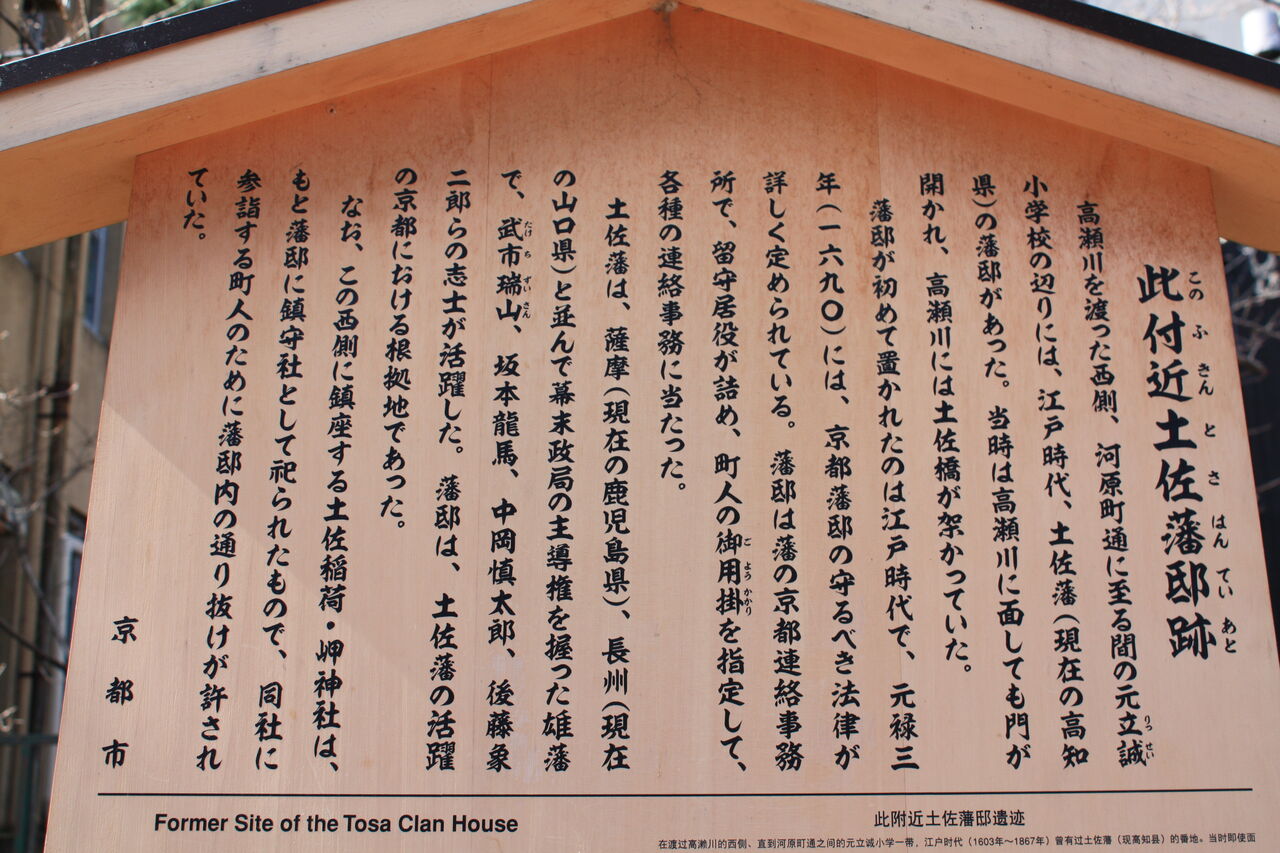 此付近土佐藩邸跡
このふきんとさはんていあと
高瀬川を渡った西側、河原町通に至る間の元立誠
りっせい
小学校の辺りには、江戸時代、土佐藩(現在の高知
県)の藩邸があった。当時は高瀬川に面しても門が
開かれ、高瀬川には土佐橋が架かっていた。
藩邸が初めて置かれたのは江戸時代で、元禄三
年(一六九〇)には、京都藩邸の守るべき法律が
詳しく定められている。藩邸は藩の京都連絡事務
所で、留守居役が詰め、町人の御用掛を指定して、
ごようかかり
各種の連絡事務に当たった。
土佐藩は、薩摩(現在の鹿児島県)、長州(現在
の山口県)と並んで幕末政局の主導権を握った雄藩
で、武市瑞山、坂本龍馬、中岡慎太郎、後藤象
たけちずいさん
二郎らの志士が活躍した。藩邸は、土佐藩の活躍
の京都における根拠地であった。
なお、この西側に鎮座する土佐稲荷・岬神社は、
もと藩邸に鎮守社として祀られたもので、同社に
参詣する町人のために藩邸内の通り抜けが許され
ていた。
京都市
Former Site of the Tosa Clan House
此附近土佐藩邸遗迹
在渡过高濑川的西侧、直到河原町通之间的元立诚小学一带，江户时代（1603年～1867年）曾有过土佐藩（现高知县）的番地。当时即使面